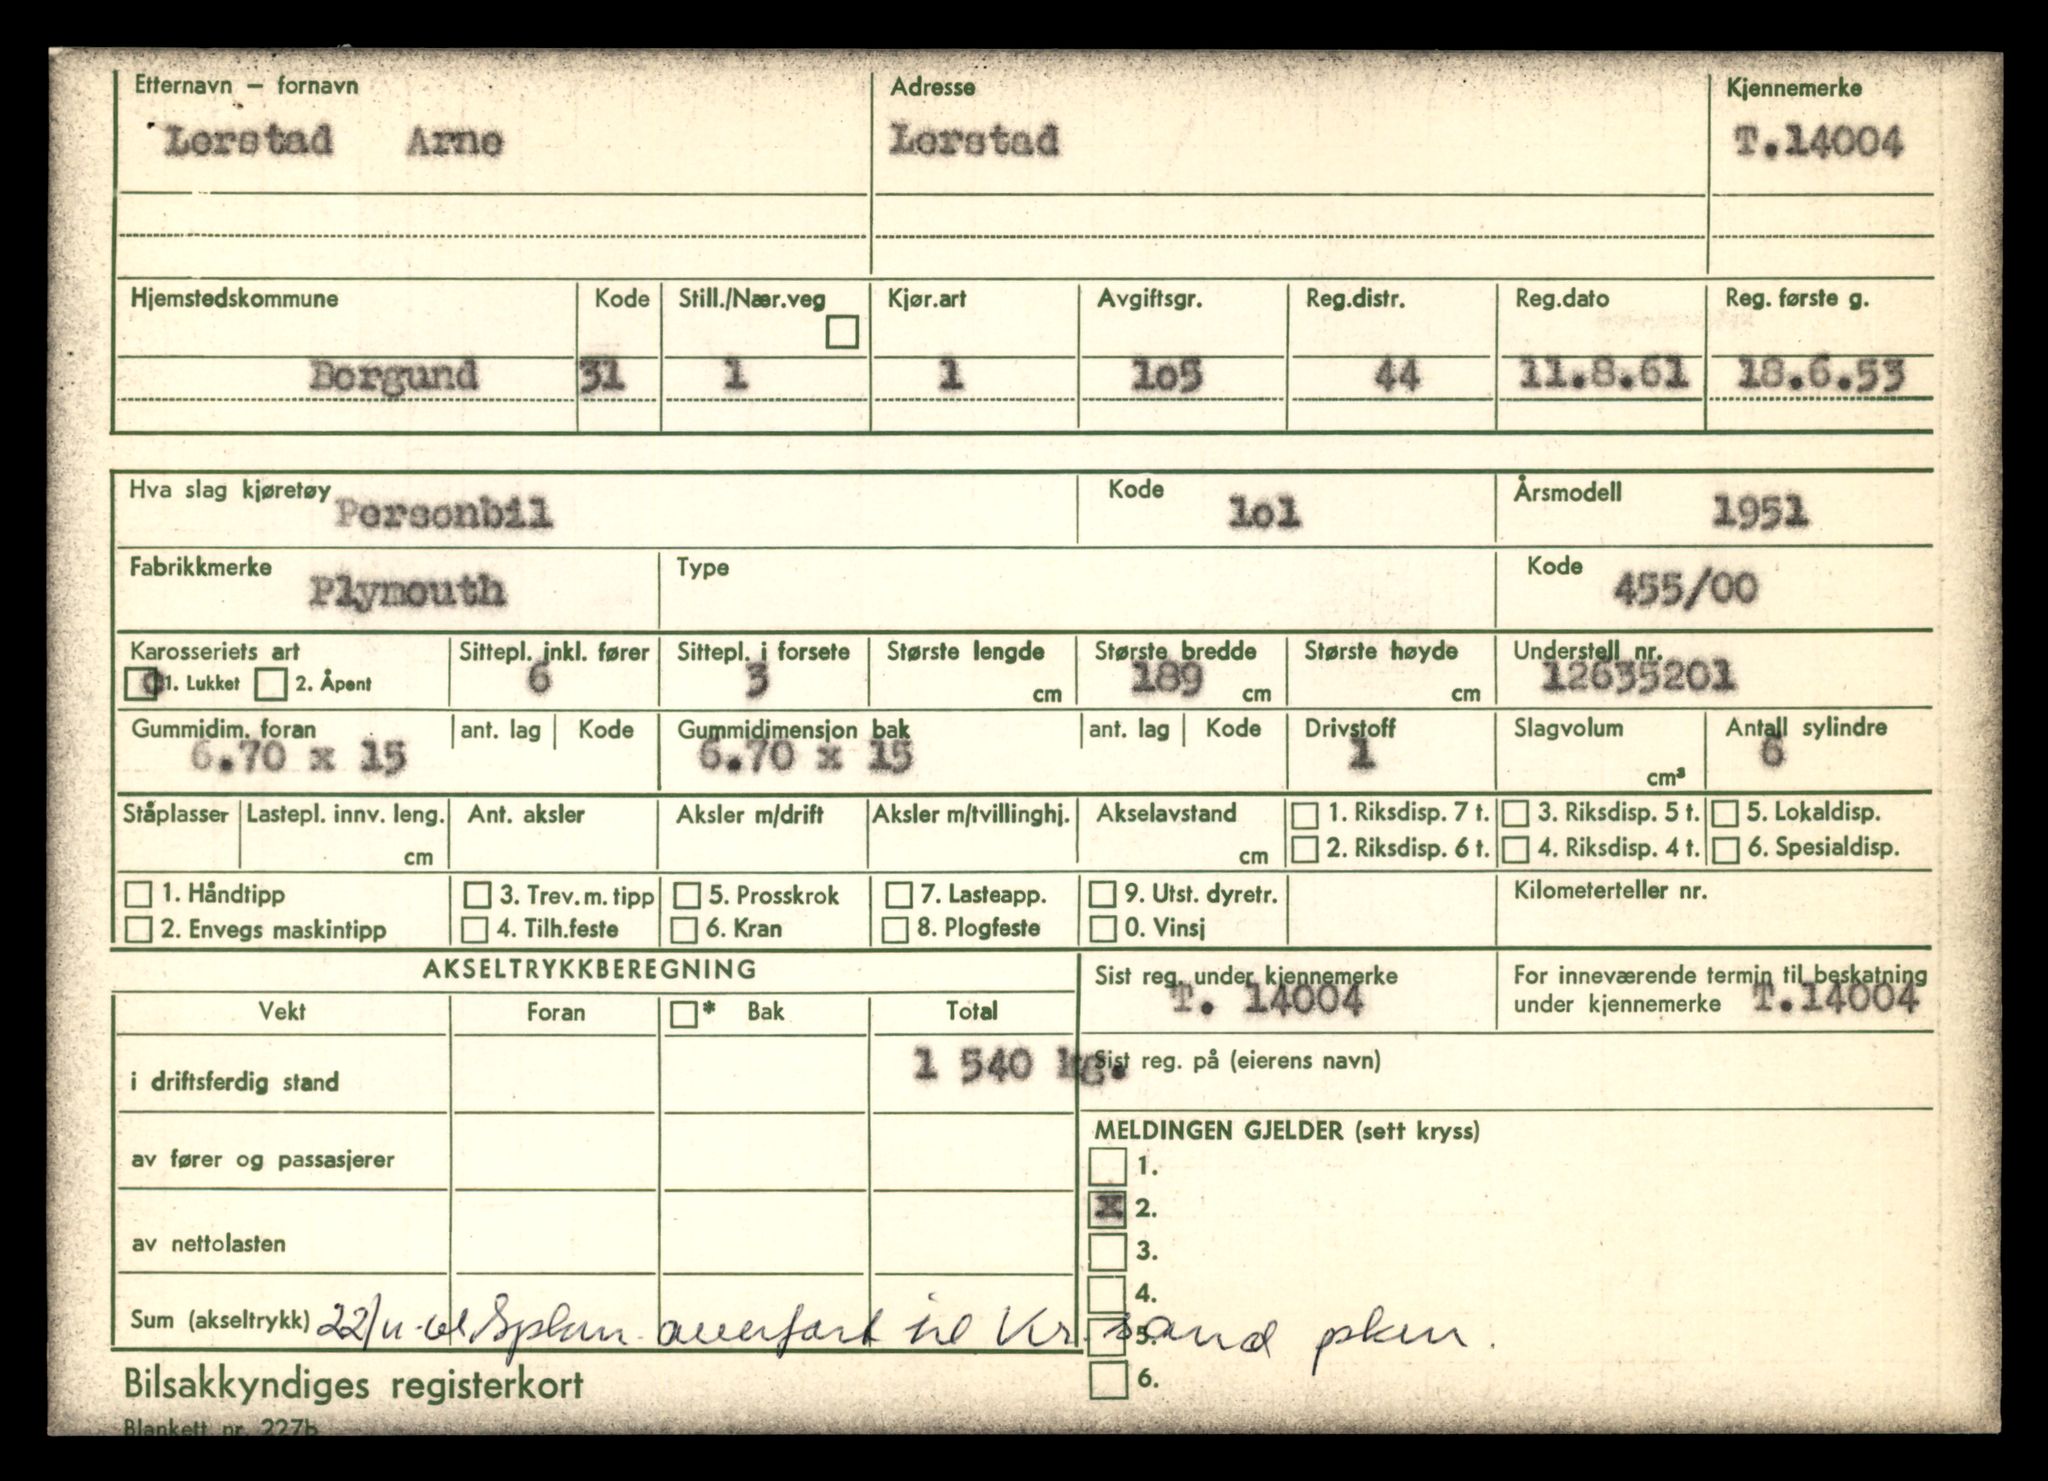 Etternavn – fornavn Adresse Kjennemerke
Lerstad Arne Lerstad T.14004
Hjemstedskommune Kode Still./Nær.veg Kjør.art Avgiftsgr. Reg.distr. Reg.dato Reg. første g.
Borgund 31 1 1 1o5 44 11.8.61 18.6.53
Hva slag kjøretøy Personbil Kode 1o1 Årsmodell 1951
Fabrikkmerke Plymouth Type Kode 455/00
Karosseriets art Sittepl. inkl. fører Sittepl. i forsete Største lengde Største bredde Største høyde Understell nr.
1. Lukket 2. Åpent 6 3 cm 189 cm cm 12635201
Gummidim. foran ant. lag Kode Gummidimensjon bak ant. lag Kode Drivstoff Slagvolum Antall sylindre
6.70 x 15 6.70 x 15 1 cm³ 6
Ståplasser Lastepl. innv. leng. Ant. aksler Aksler m/drift Aksler m/tvillinghj. Akselavstand 1. Riksdisp. 7 t. 3. Riksdisp. 5 t. 5. Lokaldisp.
cm cm 2. Riksdisp. 6 t. 4. Riksdisp. 4 t. 6. Spesialdisp.
1. Håndtipp 3. Trev. m. tipp 5. Prosskrok 7. Lasteapp. 9. Utst. dyretr. Kilometerteller nr.
2. Envegs maskintipp 4. Tilh.feste 6. Kran 8. Plogfeste 0. Vinsj
AKSELTRYKKBEREGNING Sist reg. under kjennemerke For inneværende termin til beskatning
T. 14004 under kjennemerke T.14004
Vekt Foran * Bak Total
i driftsferdig stand 1 540 kg. Sist reg. på (eierens navn)
MELDINGEN GJELDER (sett kryss)
av fører og passasjerer 1.
x 2.
av nettolasten 3.
4.
Sum (akseltrykk) 22/11- overført til Kr.sand pkm. 5.
Bilsakkyndiges registerkort 6.
Blankett nr. 227b